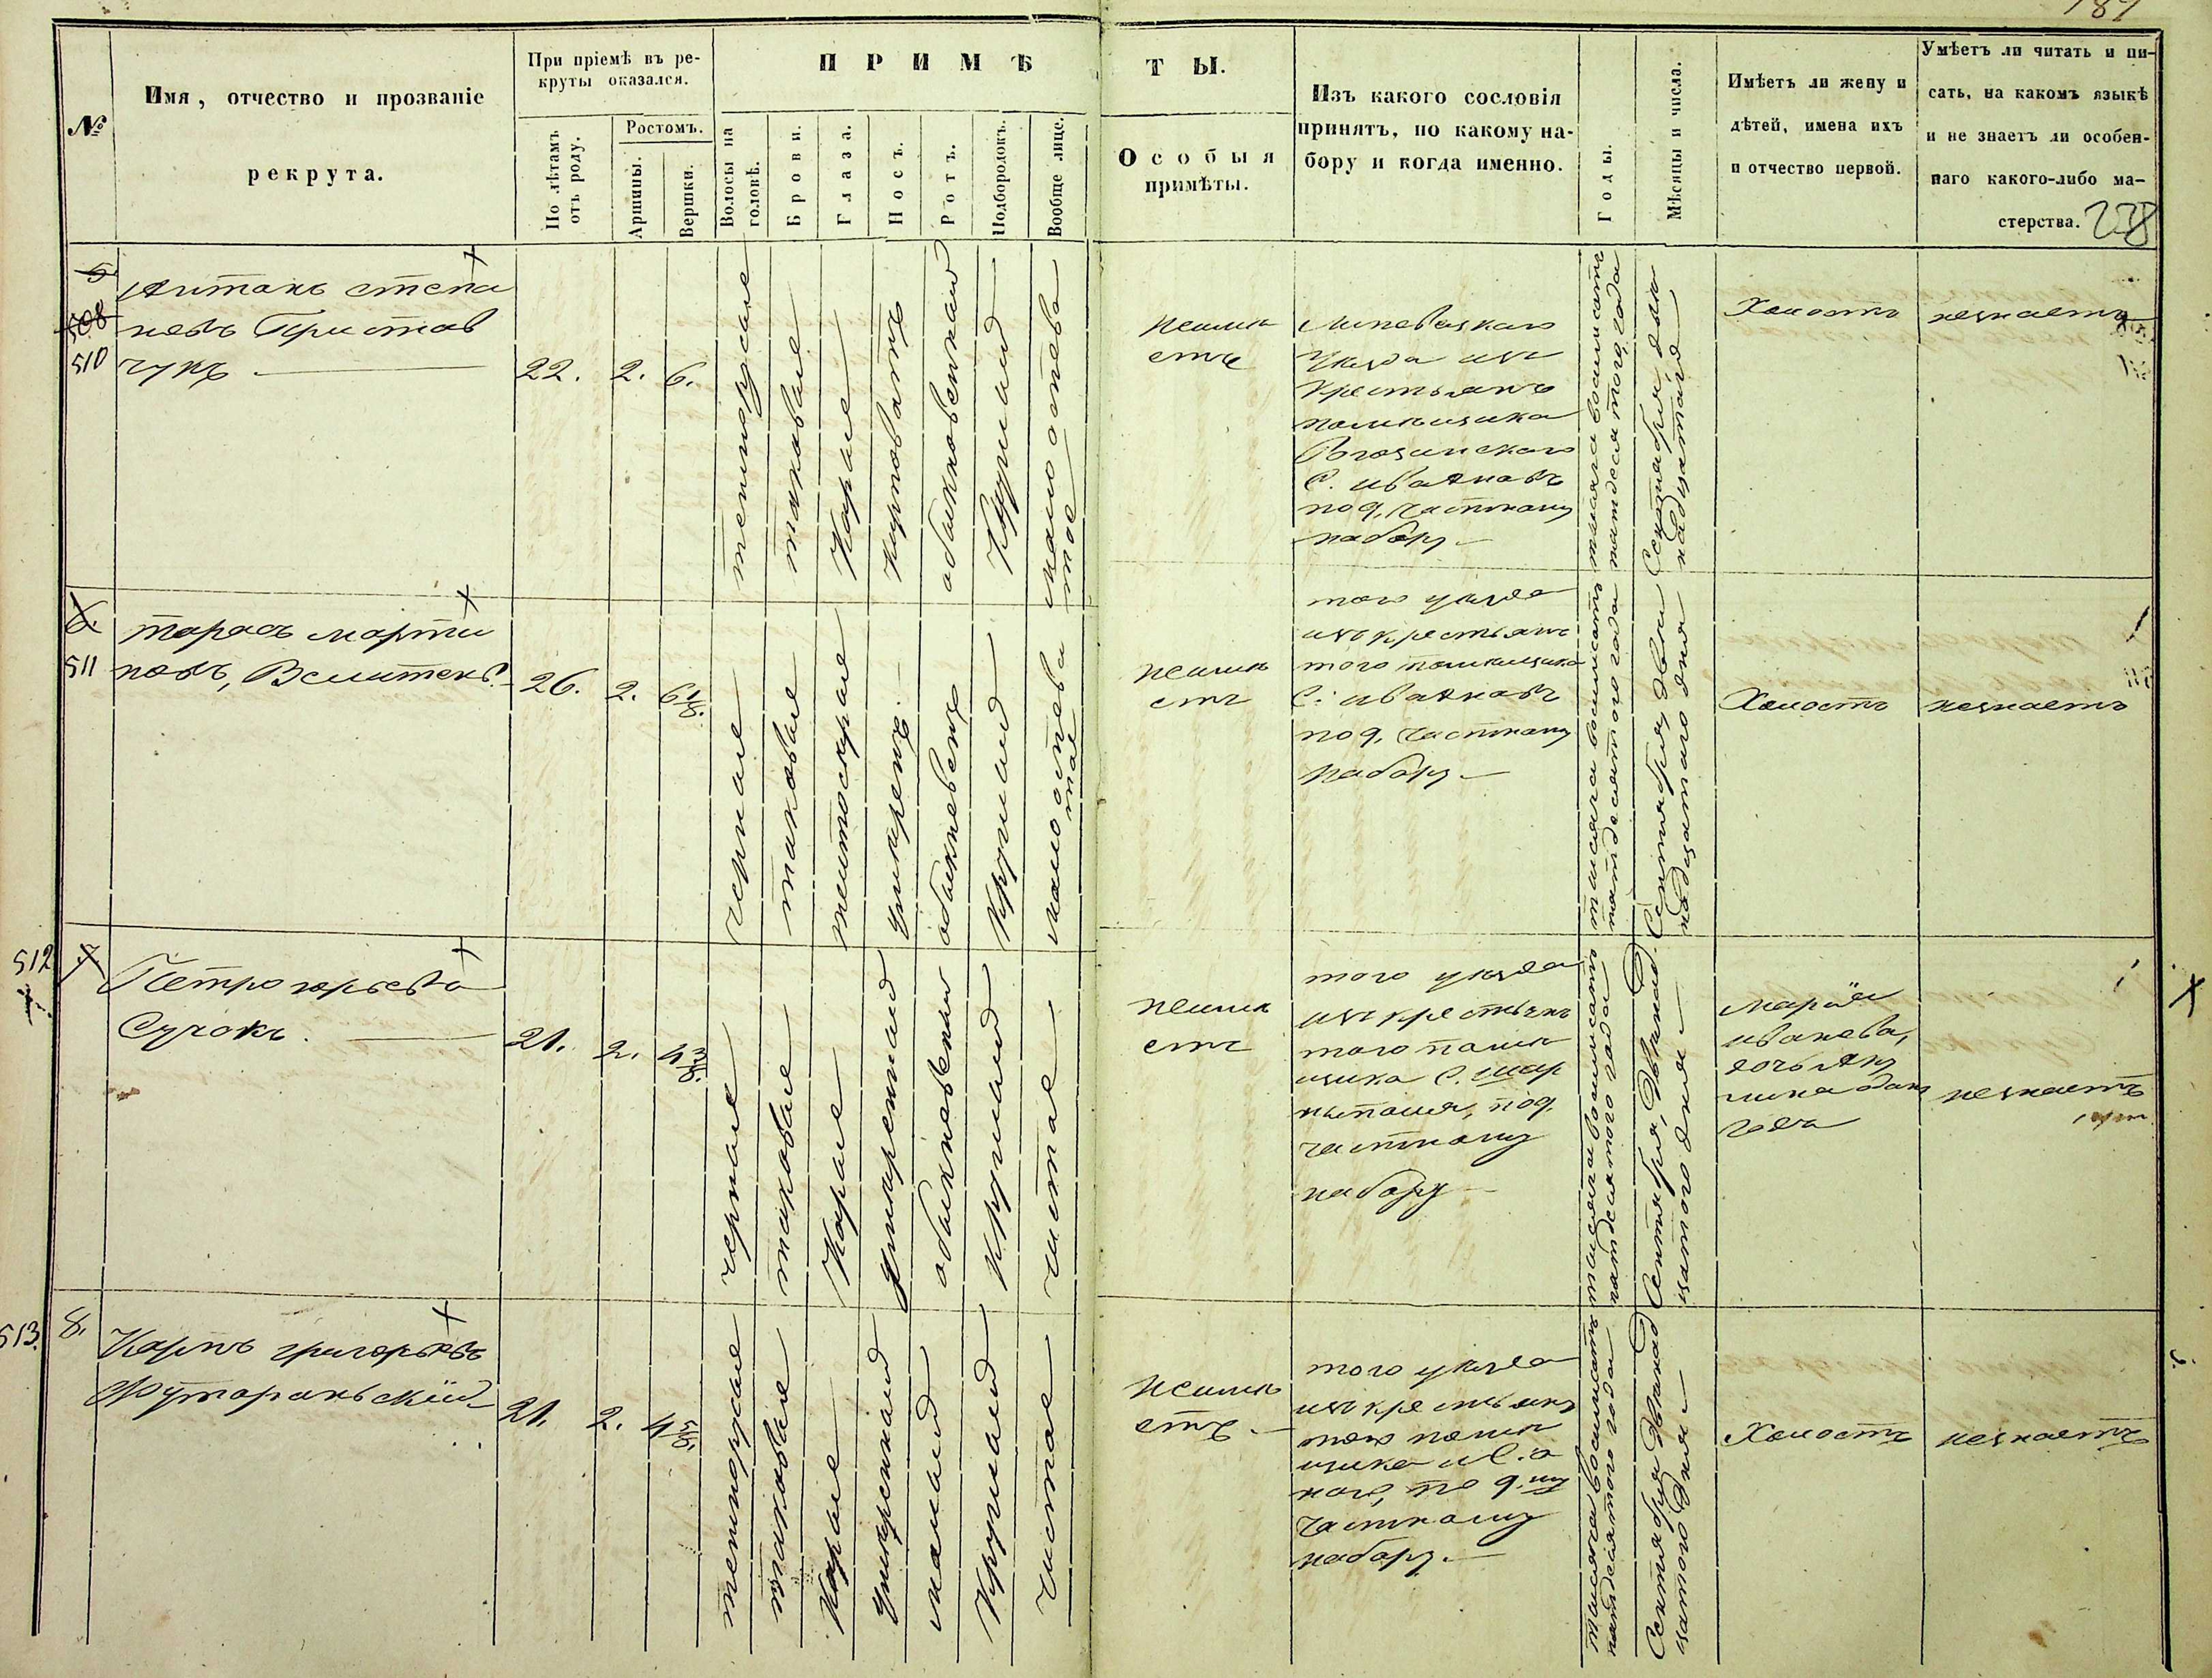 187
№
Имя, отчество и прозваніе
рекрута.
При пріемѣ въ ре-
круты оказался.
По лѣтамъ
отъ роду.
Ростомъ.
Аршины.
Вершки.
ПРИМѢ
ТЫ.
Волосы на
головѣ.
Брови.
Глаза.
Носъ.
Ротъ.
Подбородокъ.
Вообще лице.
Особыя
примѣты.
Изъ какого сословія
принятъ, по какому на-
бору и когда именно.
Годы.
Мѣсяцы и числа.
Имѣетъ ли жену и
дѣтей, имена ихъ
и отчество первой.
Умѣетъ ли читать и пи-
сать, на какомъ языкѣ
и не знаетъ ли особен-
наго какого-либо ма-
стерства.
238
508
510
Антонъ степа
новъ Пристав
чукъ
22.
2.
6.
темнорусые
таковые
Карие
обыкновенный
Круглый
неиме
етъ
Липовецкаго
Уезда изъ
Крестьянъ
помещика
С. иванавъ
по 9, частному
набору
тысяча восимсатъ
пятдесятого года
Сентября два
надцатаго
Холостъ
незнаетъ
6.
511
тарасъ марти
новъ,
26.
2.
6 1/8.
черные
таковые
обыкновенъ
Круглый
неиме
етъ
того уезда
изъ крестьянъ
того помещика
С. иванавъ
по 9, частному
набору
тысяча восимсатъ
пятдесятого года
Сентября двен
надцатаго дня
Холостъ
незнаетъ
512
7.
Петро юрьевъ
Сучокъ.
21.
2.
4 3/8.
черные
таковые
Карие
умеренный
обыкновенный
Круглый
чистое
неиме
етъ
того уезда
изъ крестьянъ
того поме
щика С. шар
по 9,
частному
набору
тысяча восимсатъ
пятдесятого года
Сентября, двянад
цатого дня
Марiя
иванова,
дочь
года
незнаетъ
513.
8.
Карпъ григорьевъ
Футораньскiй
21.
2.
4 5/8.
темнорусые
таковые
Карие
умеренный
малый
Круглый
чистое
неиме
етъ.
того уезда
изъ крестьянъ
того поме
щика и С. о
ного, по 9.му
частному
набору.
тысяча восимсатъ
пятдесятого года
Сентября двянад
цатого дня
Холостъ
незнаетъ